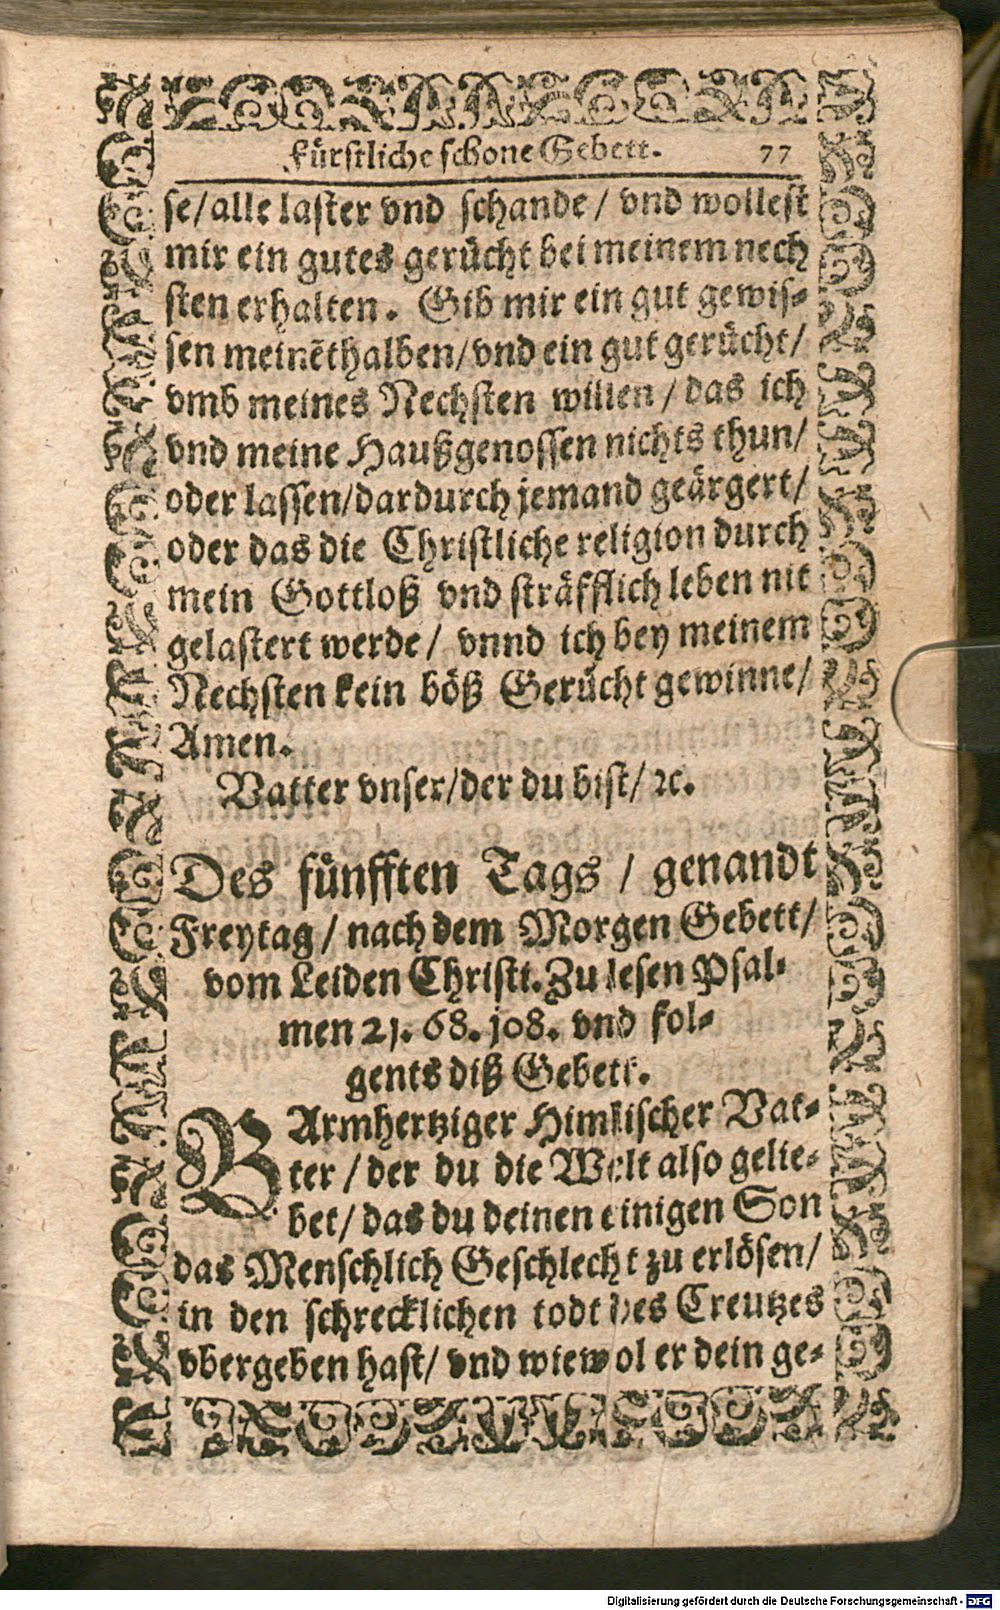 Fürstliche schone Gebett. 77
se/alle laster vnd schande/ vnd wollest
mir ein gutes gerücht bei meinem nech
sten erhalten. Gib mir ein gut gewis-
sen meinẽthalben/vnd ein gut gerücht/
vmb meines Nechsten willen/das ich
vnd meine Haußgenossen nichts thun/
oder lassen/dardurch jemand geärgert/
oder das die Christliche religion durch
mein Gottloß vnd sträfflich leben nit
gelastert werde/ vnnd ich bey meinem
Nechsten kein böß Gerücht gewinne/
Amen.
Vatter vnser/der du bist/ ꝛc.
Des fünfften Tags / genandt
Freytag/ nach dem Morgen Gebett/
vom Leiden Christi. Zu lesen Psal-
men 21. 68. 108. vnd fol-
gents diß Gebett.
BArmhertziger Himlischer Vat-
ter/der du die Welt also gelie-
bet/das du deinen einigen Son
das Menschlich Geschlecht zu erlösen/
in den schrecklichen todt des Creutzes
vbergeben hast/ vnd wiewol er dein ge-
Digitalisierung gefördert durch die Deutsche Forschungsgemeinschaft - DFG